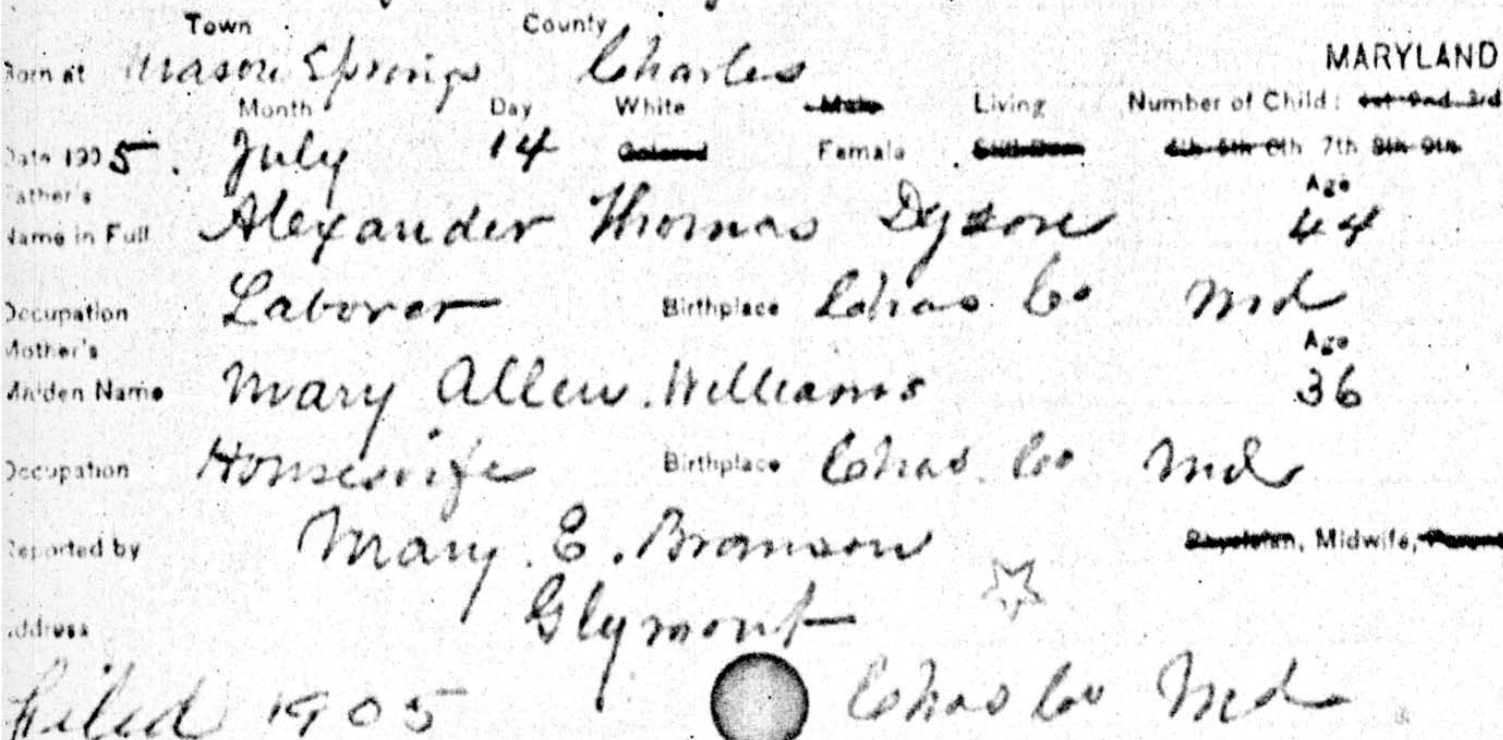 Town County
Born at Mason Springs Charles MARYLAND
Month Day White Male Living Number of Child: 1st 2nd 3rd
Date 1905. July 14 Colored Female Still-Born 4th 5th 6th 7th 8th 9th
Father's Age
Name in Full Alexander Thomas Dyson 44
Occupation Laborer Birthplace Chas Co Md
Mother's Age
Maiden Name Mary Allen Williams 36
Occupation Housewife Birthplace Chas. Co Md
Reported by Mary. E. Branson Physician, Midwife, Parent
Address Glymont
Filed 1905 Chas Co Md